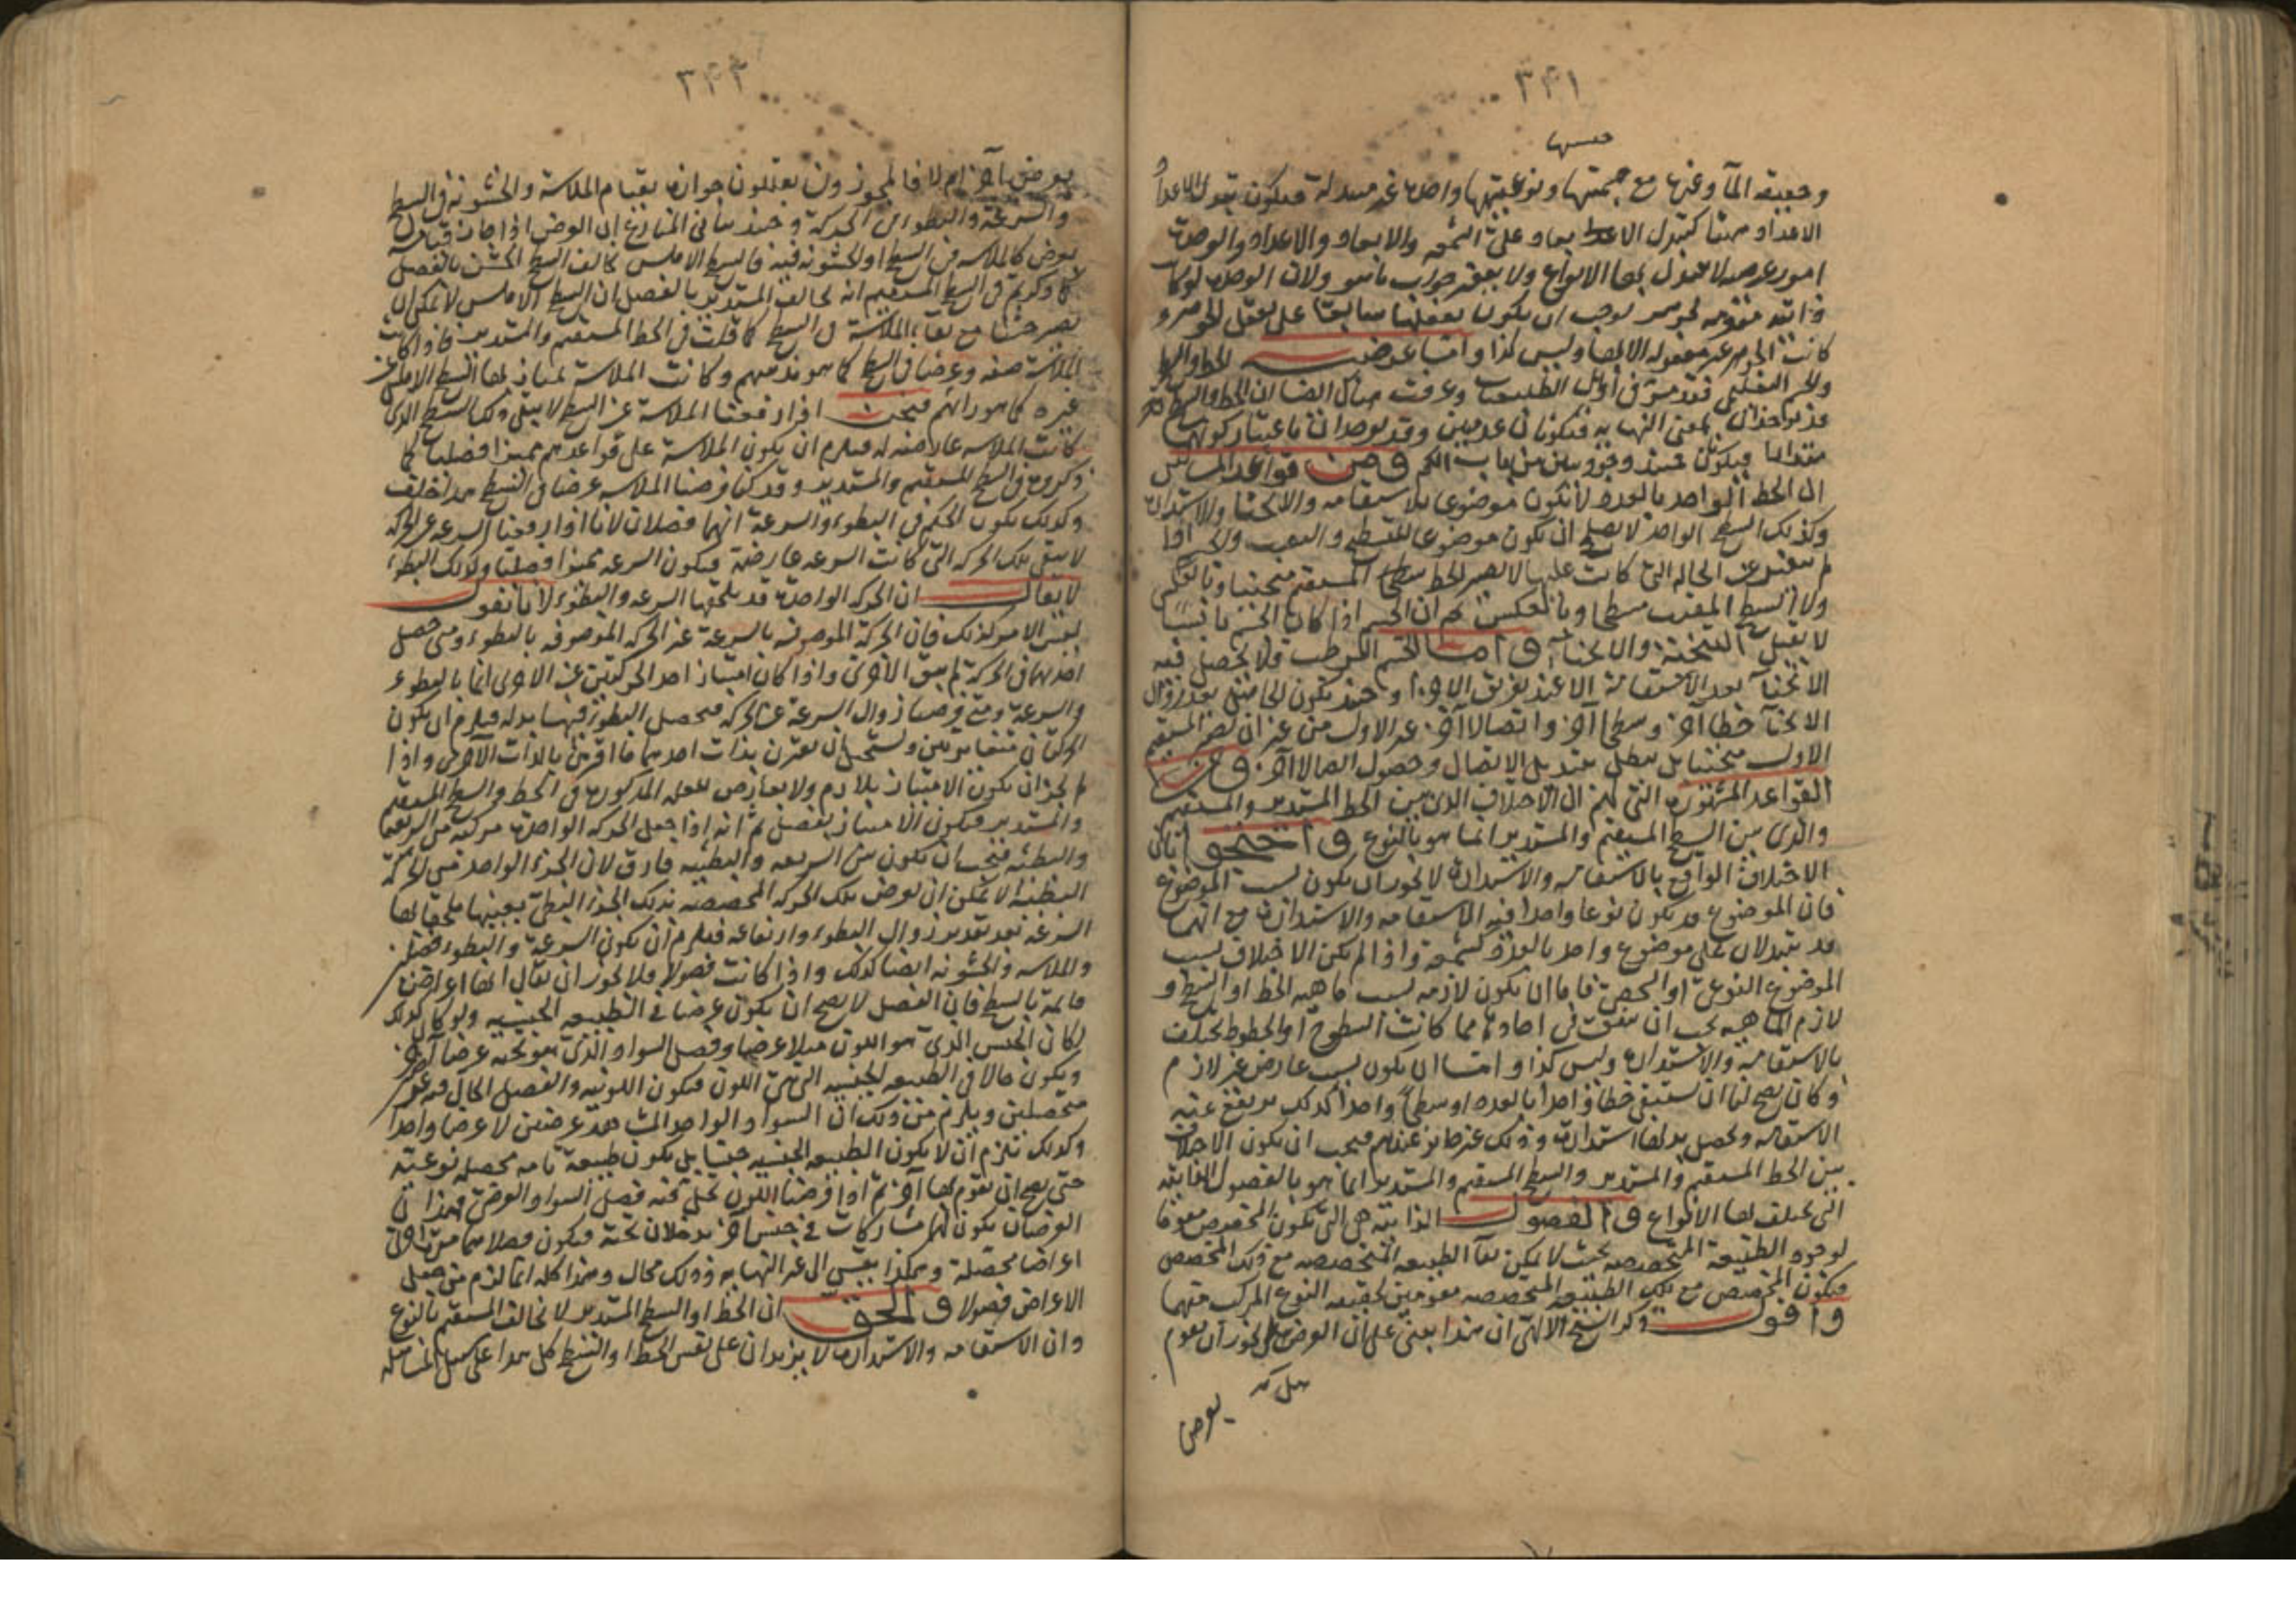 ٣٤١
جسميتها
وحقيقة الماء وغيرها مع جسميتها ونوعيتها واحدة غير متبدلة فيكون تبدل الاعداد
الاعداد هيهنا كتبدل الابعاد على الشمعة والابعاد والاعداد والوحدة
امور عرضية لا تتبدل بها الانواع ولا يتغير جواب ما هو ولان الوحدة لو كانت
ذاتية مقومة للجوهر لوجب ان يكون تعقلها سابقا على تعقل الجوهر و
كانت الجوهر غير معقولة الا بها وليس كذا واما عرضية الخط والسطح
والجسم التعليمي فقد مر في اوايل الطبيعيات وعرفت هناك ايضا ان الخط والسطح
قد يوخذان بمعنى النهاية فيكونان عدميين وقد يوخذان باعتبار كونهما
مقدارا فيكونان حينئذ وجوديين من باب الكم ومن قواعد المشائين
ان الخط الواحد بالعدد لا يكون موضوعا للاستقامة والانحناء والاستدارة
وكذلك السطح الواحد لا يصلح ان يكون موضوعا للتسطيح والتقعيب والجسم اذا
لم يتغير عن الحالة التي كانت عليها لا يصير الخط المستقيم منحنيا وبالعكس
ولا السطح المقعب مسطحا وبالعكس ثم ان الجسم اذا كان الجسم يابسا
لا يقبل التنحية والانحناء واما الجسم الرطب فلا يحصل فيه
الانحناء بعد الاستقامة الا عند تفريق الاجزاء وحينئذ يكون للمنحنى بعد زوال
الانحناء خطا آخر وسطحا آخر واتصالا آخر غير الاول من غير ان يصير المستقيم
الاول منحنيا بل يبطل بتبديل الاتصال وحصول اتصالا آخر ومن
القواعد المشهورة التي لهم ان الاختلاف الذي بين الخط المستدير والمستقيم
والذي بين السطح المستقيم والمستدير انما هو بالنوع واحتجوا بان
الاختلاف الواقع بالاستقامة والاستدارة لا يجوز ان يكون بسبب الموضوع
فان الموضوع قد يكون نوعا واحدا فيه الاستقامة والاستدارة مع انهما
قد يتبدلان على موضوع واحد بالعدد كشمعة واذا لم يكن الاختلاف بسبب
الموضوع النوعي او الشخصي فاما ان يكون لازمه بسبب ماهية الخط او السطح و
لازم الماهية يجب ان يتفق في احادها فما كانت السطوح او الخطوط تختلف
بالاستقامة والاستدارة وليس كذا واما ان يكون بسبب عارض غير لازم
وكان يصح لنا ان نستبقي خطا واحدا بالعدد او سطحا واحدا كذلك يرتفع عنه
الاستقامة وتحصل بدلها استدارة وذلك غير جايز عندهم فيجب ان يكون الاختلاف
بين الخط المستقيم والمستدير والسطح المستقيم والمستدير انما هو بالفصول الذاتية
التي تختلف بها الانواع والفصول الذاتية هي التي تكون المخصص مقوما
لوجود الطبيعة المتخصصة بحيث لا يمكن بقاء الطبيعة المتخصصة مع ذلك المخصص
فيكون المخصص مع تلك الطبيعة المتخصصة مقومين لحقيقة النوع المركب منهما
واقول ذكر الشيخ الالهي ان هذا يبتني على ان العرض هل يجوز ان يقوم
يعرض
٣٤٢
بعرض آخر ام لا فالمجوزون يعللون جوازه بقيام الملاسة والخشونة في السطح
والسرعة والبطؤ في الحركة وحينئذ يتأتى المنازع ان العرض اذا جاز قيامه
بعرض كالملاسة في السطح او الخشونة فيه فالسطح الاملس يخالف السطح الخشن بالفصل
كما ذكرتم في السطح المستقيم انه يخالف المستدير بالفصل ان السطح الاملس لا يمكن ان
يصير خشنا مع بقاء الملاسة في السطح كما قلت في الخط المستقيم والمستدير فاذا كانت
الملاسة صفة وعرضا في السطح كما هو مذهبهم وكانت الملاسة يمتاز بها السطح الاملس عن
غيره كما هو رايهم فنحن اذا رفعنا الملاسة عن السطح لا يبقى ذلك السطح الذي
كانت الملاسة عارضة له فيلزم ان يكون الملاسة على قواعدهم مميزا فصليا كما
ذكروه في السطح المستقيم والمستدير وقد كنا فرضنا الملاسة عرضا في السطح هذا خلف
وكذلك يكون الحكم في البطوء والسرعة انهما فصلان لانا اذا رفعنا السرعة عن الحركة
لا يبقى تلك الحركة التي كانت السرعة عارضة فيكون السرعة مميزا فصليا وكذلك البطوء
لا يقال ان الحركة الواحدة قد يلحقها السرعة والبطوء لانا نقول
ليس الامر كذلك فان الحركة الموصوفة بالسرعة غير الحركة الموصوفة بالبطوء ومتى حصل
احدهما في الحركة لم يبق الاخرى واذا كان امتياز احد الحركتين عن الاخرى انما بالبطوء
والسرعة ومتى فرضنا زوال السرعة عن الحركة فيحصل البطوء فيها بدله فيلزم ان يكون
الحركتان متغايرتين ويستحيل ان يقترن بذات احديهما ما اقترن بالذات الاخرى واذا
لم يجز ان يكون الامتياز بلازم ولا بعارض للعلة المذكورة في الخط والسطح المستقيم
والمستدير فيكون الامتياز بفصل ثم انه اذا جعل الحركة الواحدة مركبة من السريعة
والبطئة فيجب ان يكون بين السريعة والبطئية فارق لان الجزء الواحد من الحركة
البطئية لا يمكن ان يعرض تلك الحركة المخصصة بذلك الجزء البطئ بعينها ملحقا بها
السرعة بعد تقدير زوال البطوء وارتفاعه فيلزم ان يكون السرعة والبطوء فصلين
والملاسة والخشونة ايضا كذلك واذا كانت فصولا فلا يجوز ان يقال انها اعراض
قائمة بالسطح فان الفصل لا يصح ان يكون عرضا في الطبيعة الجنسية ولو كان كذلك
لكان الجنس الذي هو اللون مثلا عرضا وفصل السواد الذي هو تحته عرضا آخر
ويكون حالا في الطبيعة الجنسية التي هي اللون فيكون اللونية والفصل الحال فيه
متحصلين ويلزم من ذلك ان السواد الواحد المشاهد عرضين لا عرضا واحدا
وكذلك يلزم ان لا يكون الطبيعة الجنسية جنسا بل يكون طبيعة تامة محصلة نوعية
حتى يصح ان يقوم بها آخر ثم اذا فرضنا اللون يحل فيه فصل السواد والعرض فهذان
العرضان يكون لهما مشاركات في جنس آخر يدخلان تحته فيكون فصلاهما مرة اخرى
اعراضا محصلة وهكذا ينتهي الى غير النهاية وذلك محال وهذا كله انما لزم من جعل
الاعراض فصولا والحق ان الخط او السطح المستدير لا يخالف المستقيم بالنوع
وان الاستقامة والاستدارة لا يزيدان على نفس الخط او السطح كل هذا على سبيل المساهلة